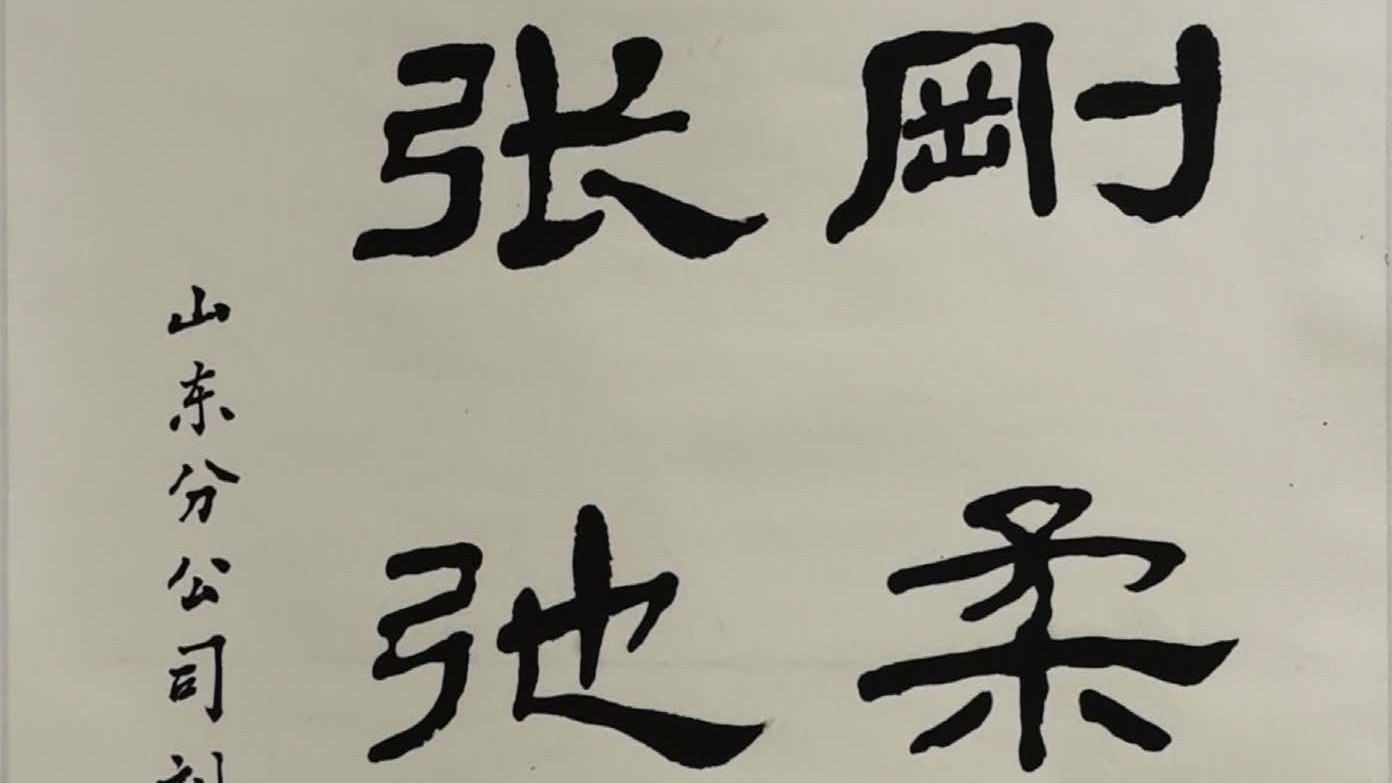 剛柔
张弛
山东分公司